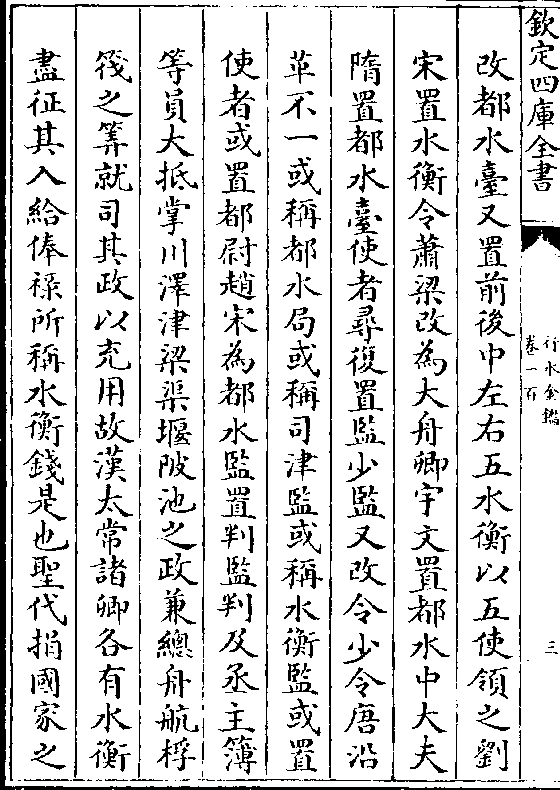 欽定四庫全書
行水金鑑
卷一百
三
改都水臺又置前後中左右五水衡以五使領之劉
宋置水衡令蕭梁改為大舟卿宇文置都水中大夫
隋置都水臺使者尋復置監少監又改令少令唐沿
革不一或稱都水局或稱司津監或稱水衡監或置
使者或置都尉趙宋為都水監置判監判及丞主簿
等員大抵掌川澤津梁渠堰陂池之政兼總舟航桴
筏之筭就司其政以充用故漢太常諸卿各有水衡
盡征其入給俸祿所稱水衡錢是也聖代捐國家之